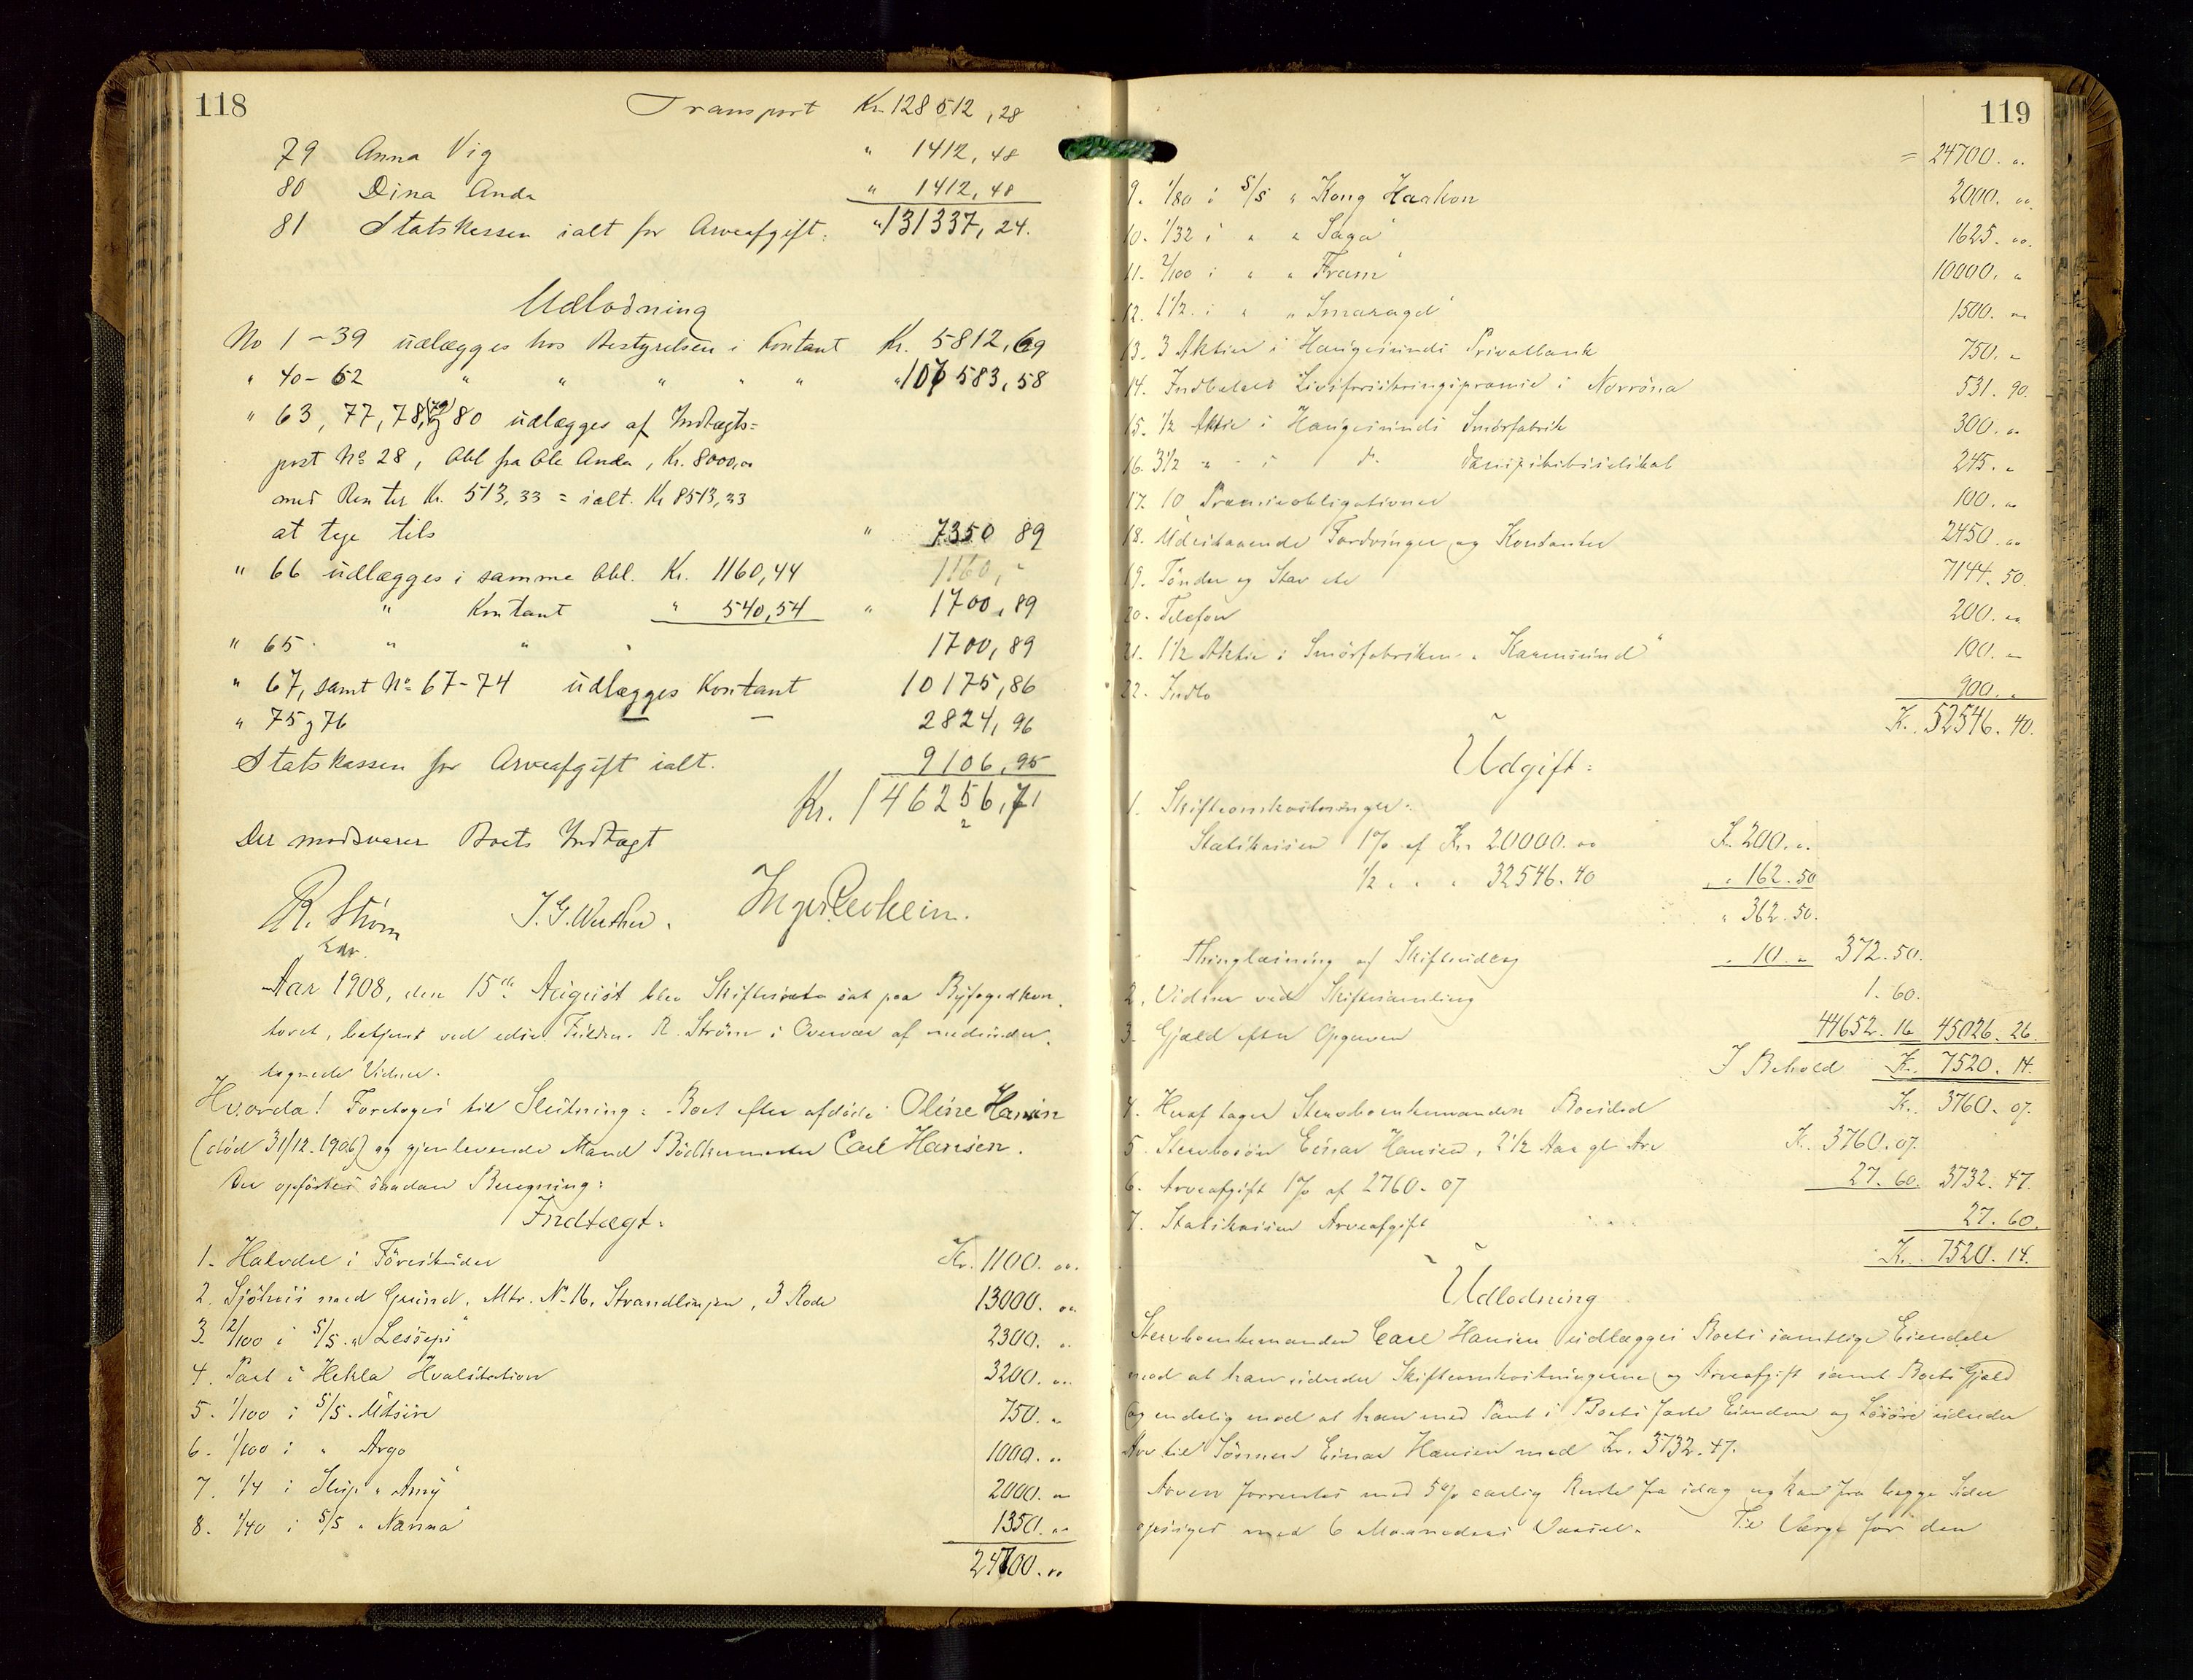 118
Transport Kr. 128512,28
79 Anna Vig " 1412,48
80 Dina Anda " 1412,48
81 Statskassen ialt for Arveafgift. " 131337,24.
Udlodning
No 1-39 udlægges hos Bestyrelsen i Kontant Kr. 5812,69
" 40-62 " " " " " " 107583,58
" 63, 77, 78, (79) og 80 udlægges af Indtægts=
post No 28, Obl fra Ole Anda, Kr. 8000,00
med Renter Kr. 513,33 = ialt. Kr 8513,33
at tage tils " 7350 89
" 66 udlægges i samme Obl. Kr. 1160,44
" Kontant " 540,54 " 1700,89
" 65 " " " 1700,89
" 67, samt No 67-74 udlægges Kontant 10175,86
" 75 og 76 — — 2824,96
Statskassen for Arveafgift ialt. 9106,95
Kr. 146256,71
Der modsvarer Boets Indtægt
R. Strøm
Edv.
J. G. Werther.
Aar 1908, den 15de August blev Skifteret sat paa Byfogedkon=
toret, betjent ved edsv. Fuldm. R. Strøm i Overvær af medunder=
tegnede Vidner.
Hvorda! Foretoges til Slutning: Boet efter afdöde Oline Hansen
(död 31/12-1906) og gjenlevende Mand Bödkermester Carl Hansen.
Der opförtes saadan Beregning:
Indtægt:
1. Halvdel i Kr. 1100. 00.
2. Sjöhus med Grund, Mtr. No 16, Strandlinjen, 3 Rode 13000. 00
3. 2/100 i S/S. "Lesseps" 2300. "
4. Part i Hekla Hvalstation 3200. 00
5. 1/100 i S/S. Utsire 750. "
6. 1/100 i " Argo 1000. "
7. 1/4 i Slup "Amy" 2000. "
8. 1/40 i S/S "Nanna" 1350. "
24700. "
119
= 24700. "
9. 1/80 i S/S "Kong Haakon 2000. 00.
10. 1/32 i " "Saga" 1625. 00.
11. 2/100 i " "Fram" 10000. "
12. 1 1/2. i " "Smaragd" 1500. "
13. 3 Aktier i Haugesunds Privatbank 750. "
14. Indbetalt Livsforsikringspræmie i Norröna 531. 90.
15. 1/2 Aktie i Haugesunds Smörfabrik 300. "
16. 3 1/2 " - i do. Dampskibsselskab 245. "
17. 10 Præmieobligationer 100. "
18. Udestaaende Fordringer og Kontanter 2450. 00
19. Tönder og Stav etc 7144. 50.
20. Telefon 200. 00
21. 1 1/2 Aktie i Smörfabriken "Karmsund" 100. —
22. Indbo 900. "
Kr. 52546. 40.
Udgift:
1. Skifteomkostninger:
Statskassen 1% af Kr. 20000. 00 Kr. 200. "
1/2 " " " 32546. 40 " 162. 50
" 362. 50.
Thinglæsning af Skifteudlæg " 10. " 372. 50.
2. Vidner ved Skiftesamling 1. 60.
3. Gjæld efter Opgaven 44652. 16 45026. 26.
I Behold Kr. 7520. 14.
4. Heraf tager Stervboenkemanden Boeslod Kr. 3760. 07.
5. Stervbosön Einar Hansen, 2 1/2 Aar gl. Arv Kr. 3760. 07.
6. Arveafgift 1% af 2760. 07 27. 60. 3732. 47.
7. Statskassen Arveafgift 27. 60.
Kr. 7520. 14.
Udlodning
Stervboenkemanden Carl Hansen udlægges Boets samtlige Eiendele
mod at han udreder Skifteomkostningerne og Arveafgift samt Boets Gjæld
og endelig mod at han med Pant i Boets faste Eiendom og Lösöre udreder
Arv til Sönnen Einar Hansen med Kr. 3732. 47.
Arven forrentes med 5% aarlig Rente fra idag og kan fra begge Sider
opsiges med 6 Maaneders Varsel. Til Værge for den